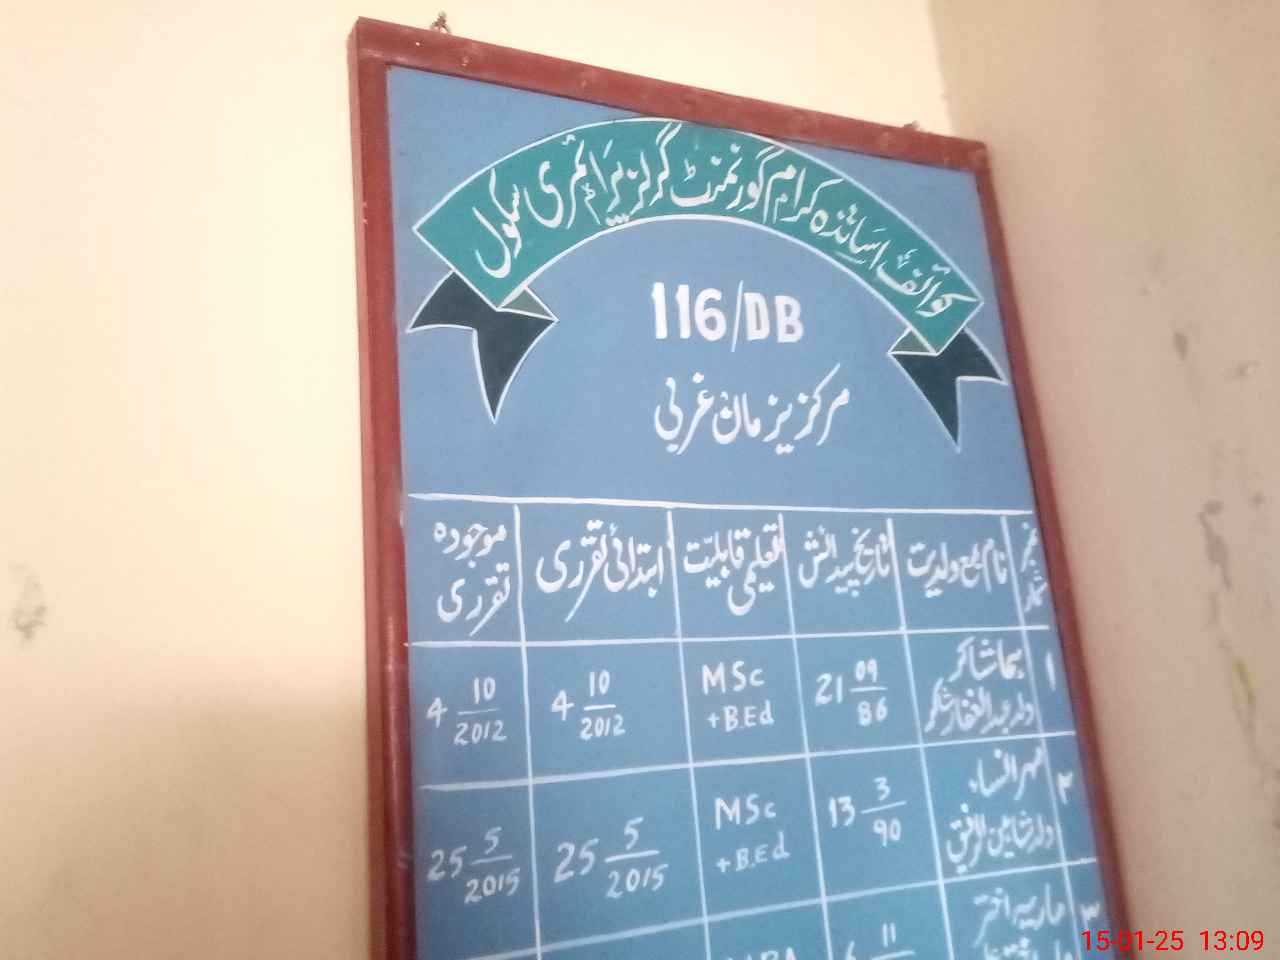 کوائف اساتذہ کرام گورنمنٹ گرلز پرائمری سکول
116/DB
مرکز یزمان غربی
نمبر شمار نام مع ولدیت تاریخ پیدائش تعلیمی قابلیت ابتدائی تقرری موجودہ تقرری
۱ سیما شاکر ولد عبدالغفار شاکر 21 09/86 MSc +B.Ed 4 10/2012 4 10/2012
۲ مہرالنساء ولد شاہین الرفیق 13 3/90 MSc +B.Ed 25 5/2015 25 5/2015
۳ ماریہ اختر 11
15-01-25 13:09